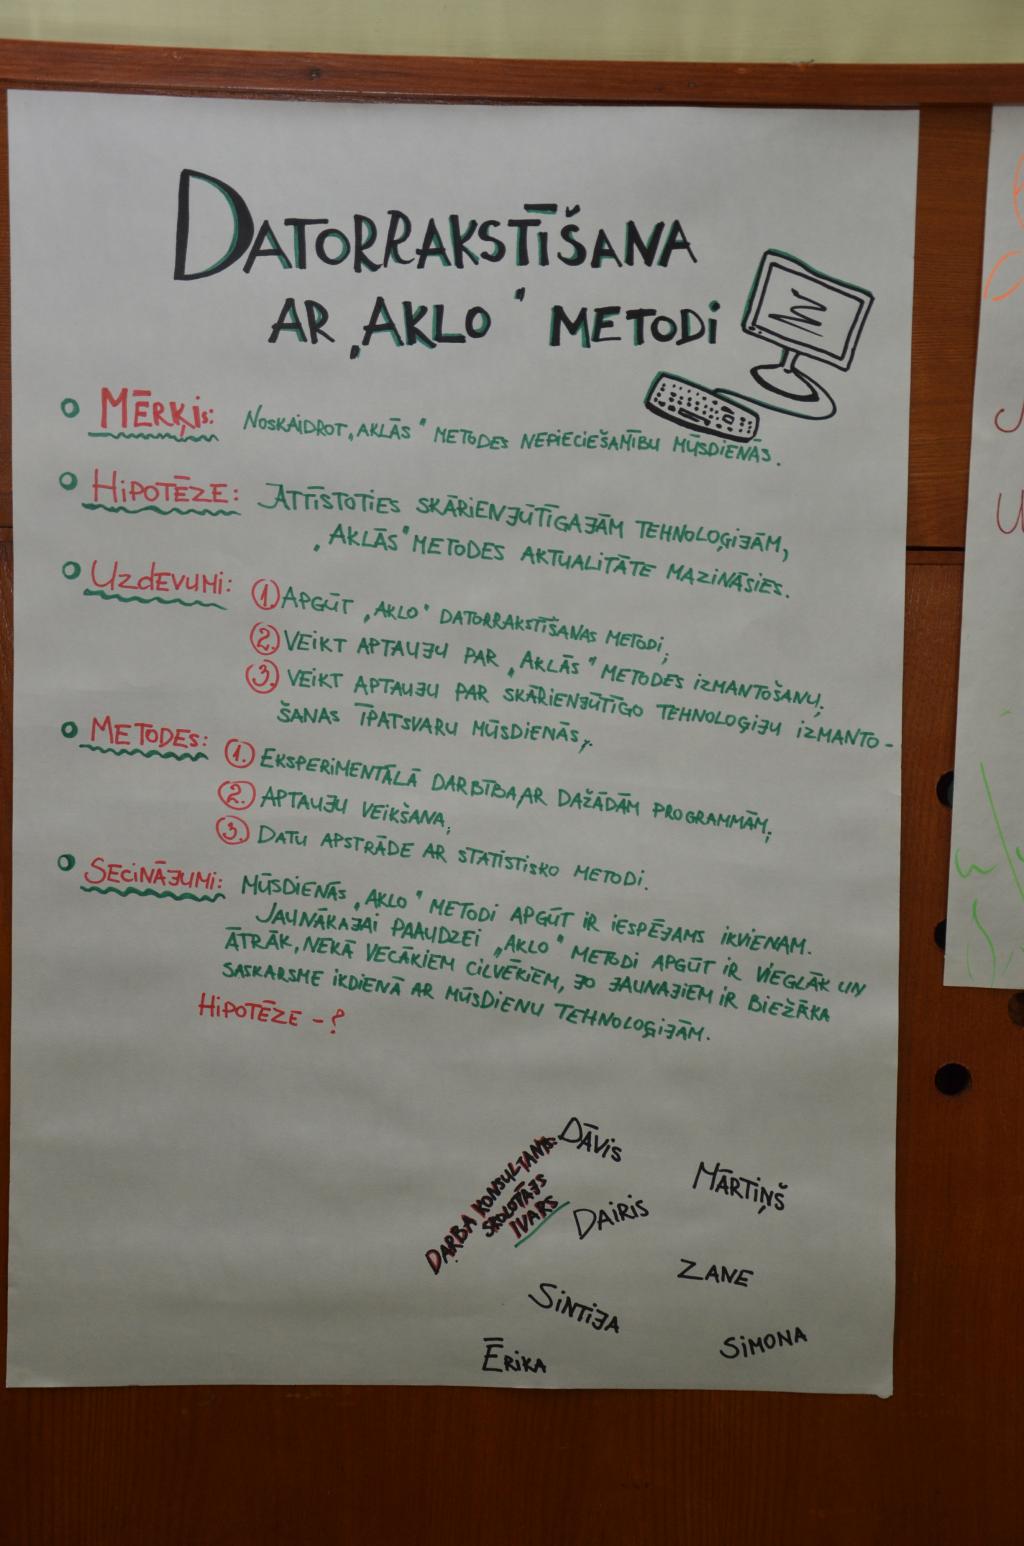 DATORRAKSTĪŠANA
AR „AKLO" METODI
MĒRĶIS: NOSKAIDROT „AKLĀS" METODES NEPIECIEŠAMĪBU MŪSDIENĀS.
HIPOTĒZE: ATTĪSTOTIES SKĀRIENJŪTĪGAJĀM TEHNOLOĢIJĀM,
„AKLĀS" METODES AKTUALITĀTE MAZINĀSIES.
UZDEVUMI: 1) APGŪT „AKLO" DATORRAKSTĪŠANAS METODI;
2. VEIKT APTAUJU PAR „AKLĀS" METODES IZMANTOŠANU;
3. VEIKT APTAUJU PAR SKĀRIENJŪTĪGO TEHNOLOĢIJU IZMANTO-
ŠANAS ĪPATSVARU MŪSDIENĀS;
METODES: 1. EKSPERIMENTĀLĀ DARBĪBA AR DAŽĀDĀM PROGRAMMĀM;
2. APTAUJU VEIKŠANA;
3. DATU APSTRĀDE AR STATISTISKO METODI.
SECINĀJUMI: MŪSDIENĀS „AKLO" METODI APGŪT IR IESPĒJAMS IKVIENAM.
JAUNĀKAJAI PAAUDZEI „AKLO" METODI APGŪT IR VIEGLĀK UN
ĀTRĀK, NEKĀ VECĀKIEM CILVĒKIEM, JO JAUNAJIEM IR BIEŽĀKA
SASKARSME IKDIENĀ AR MŪSDIENU TEHNOLOĢIJĀM.
HIPOTĒZE - ?
DARBA KONSULTANTS:
SKOLOTĀJS
IVARS
DĀVIS
MĀRTIŅŠ
DAIRIS
ZANE
SINTIJA
SIMONA
ĒRIKA